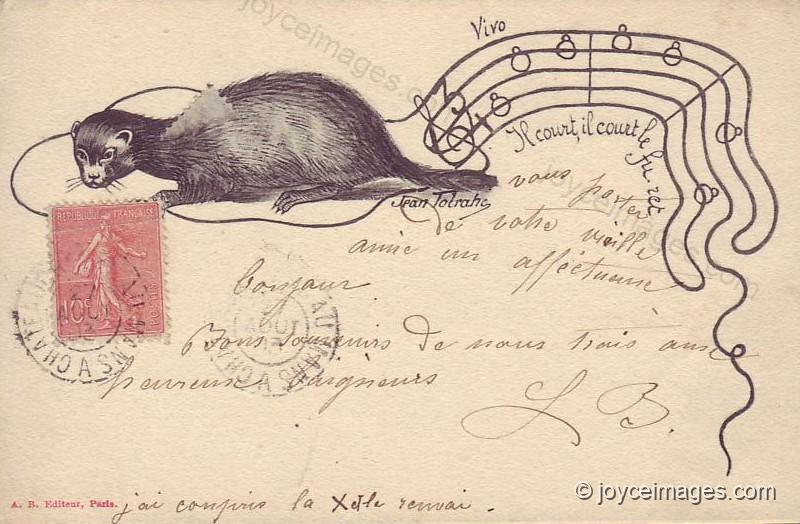 joyceimages.com
Vivo
Il court, il court le furet
Jean Tolrahc
joyceimages.com
vous porter
de votre vieille
amie un affectueux
bonjour
REPUBLIQUE FRANÇAISE
10c
AOUT
MANS A CHATEAU
AOUT
MANS A CHATEAU
Bons souvenirs de nous trois aux
heureux baigneurs
L B.
A. B. Editeur, Paris.
j'ai compris la X et le renvoi.
© joyceimages.com